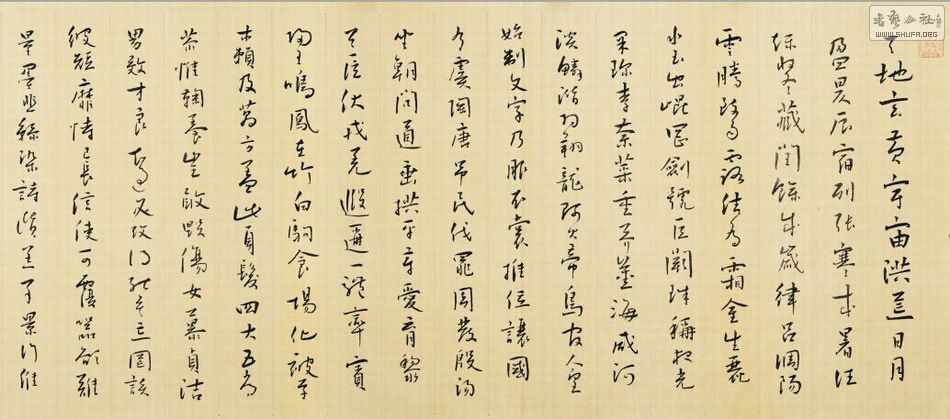 天地玄黄宇宙洪荒日月
盈昃辰宿列張寒来暑往
秋收冬藏閏餘成歲律吕調陽
雲騰致雨露结為霜金生麗
水玉出崐岡劍號巨闕珠稱夜光
果珍李柰菜重芥薑海咸河
淡鱗潛羽翔龍師火帝鳥官人皇
始制文字乃服衣裳推位讓國
有虞陶唐吊民伐罪周發殷湯
坐朝問道垂拱平章愛育黎
首臣伏戎羌遐邇一體率賓
歸王鳴鳳在竹白駒食場化被草
木賴及萬方蓋此身髮四大五常
恭惟鞠養豈敢毁傷女慕貞潔
男效才良知過必改得能莫忘罔談
彼短靡恃己長信使可覆器欲難
量墨悲絲染詩讚羔羊景行維
书艺公社
WWW.SHUFA.ORG